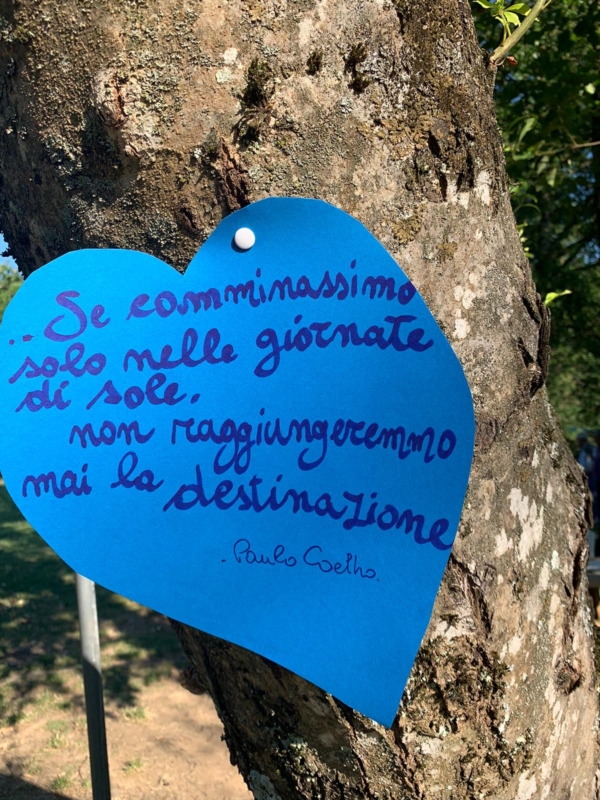 ..Se camminassimo
solo nelle giornate
di sole.
non raggiungeremmo
mai la destinazione
.Paulo Coelho.